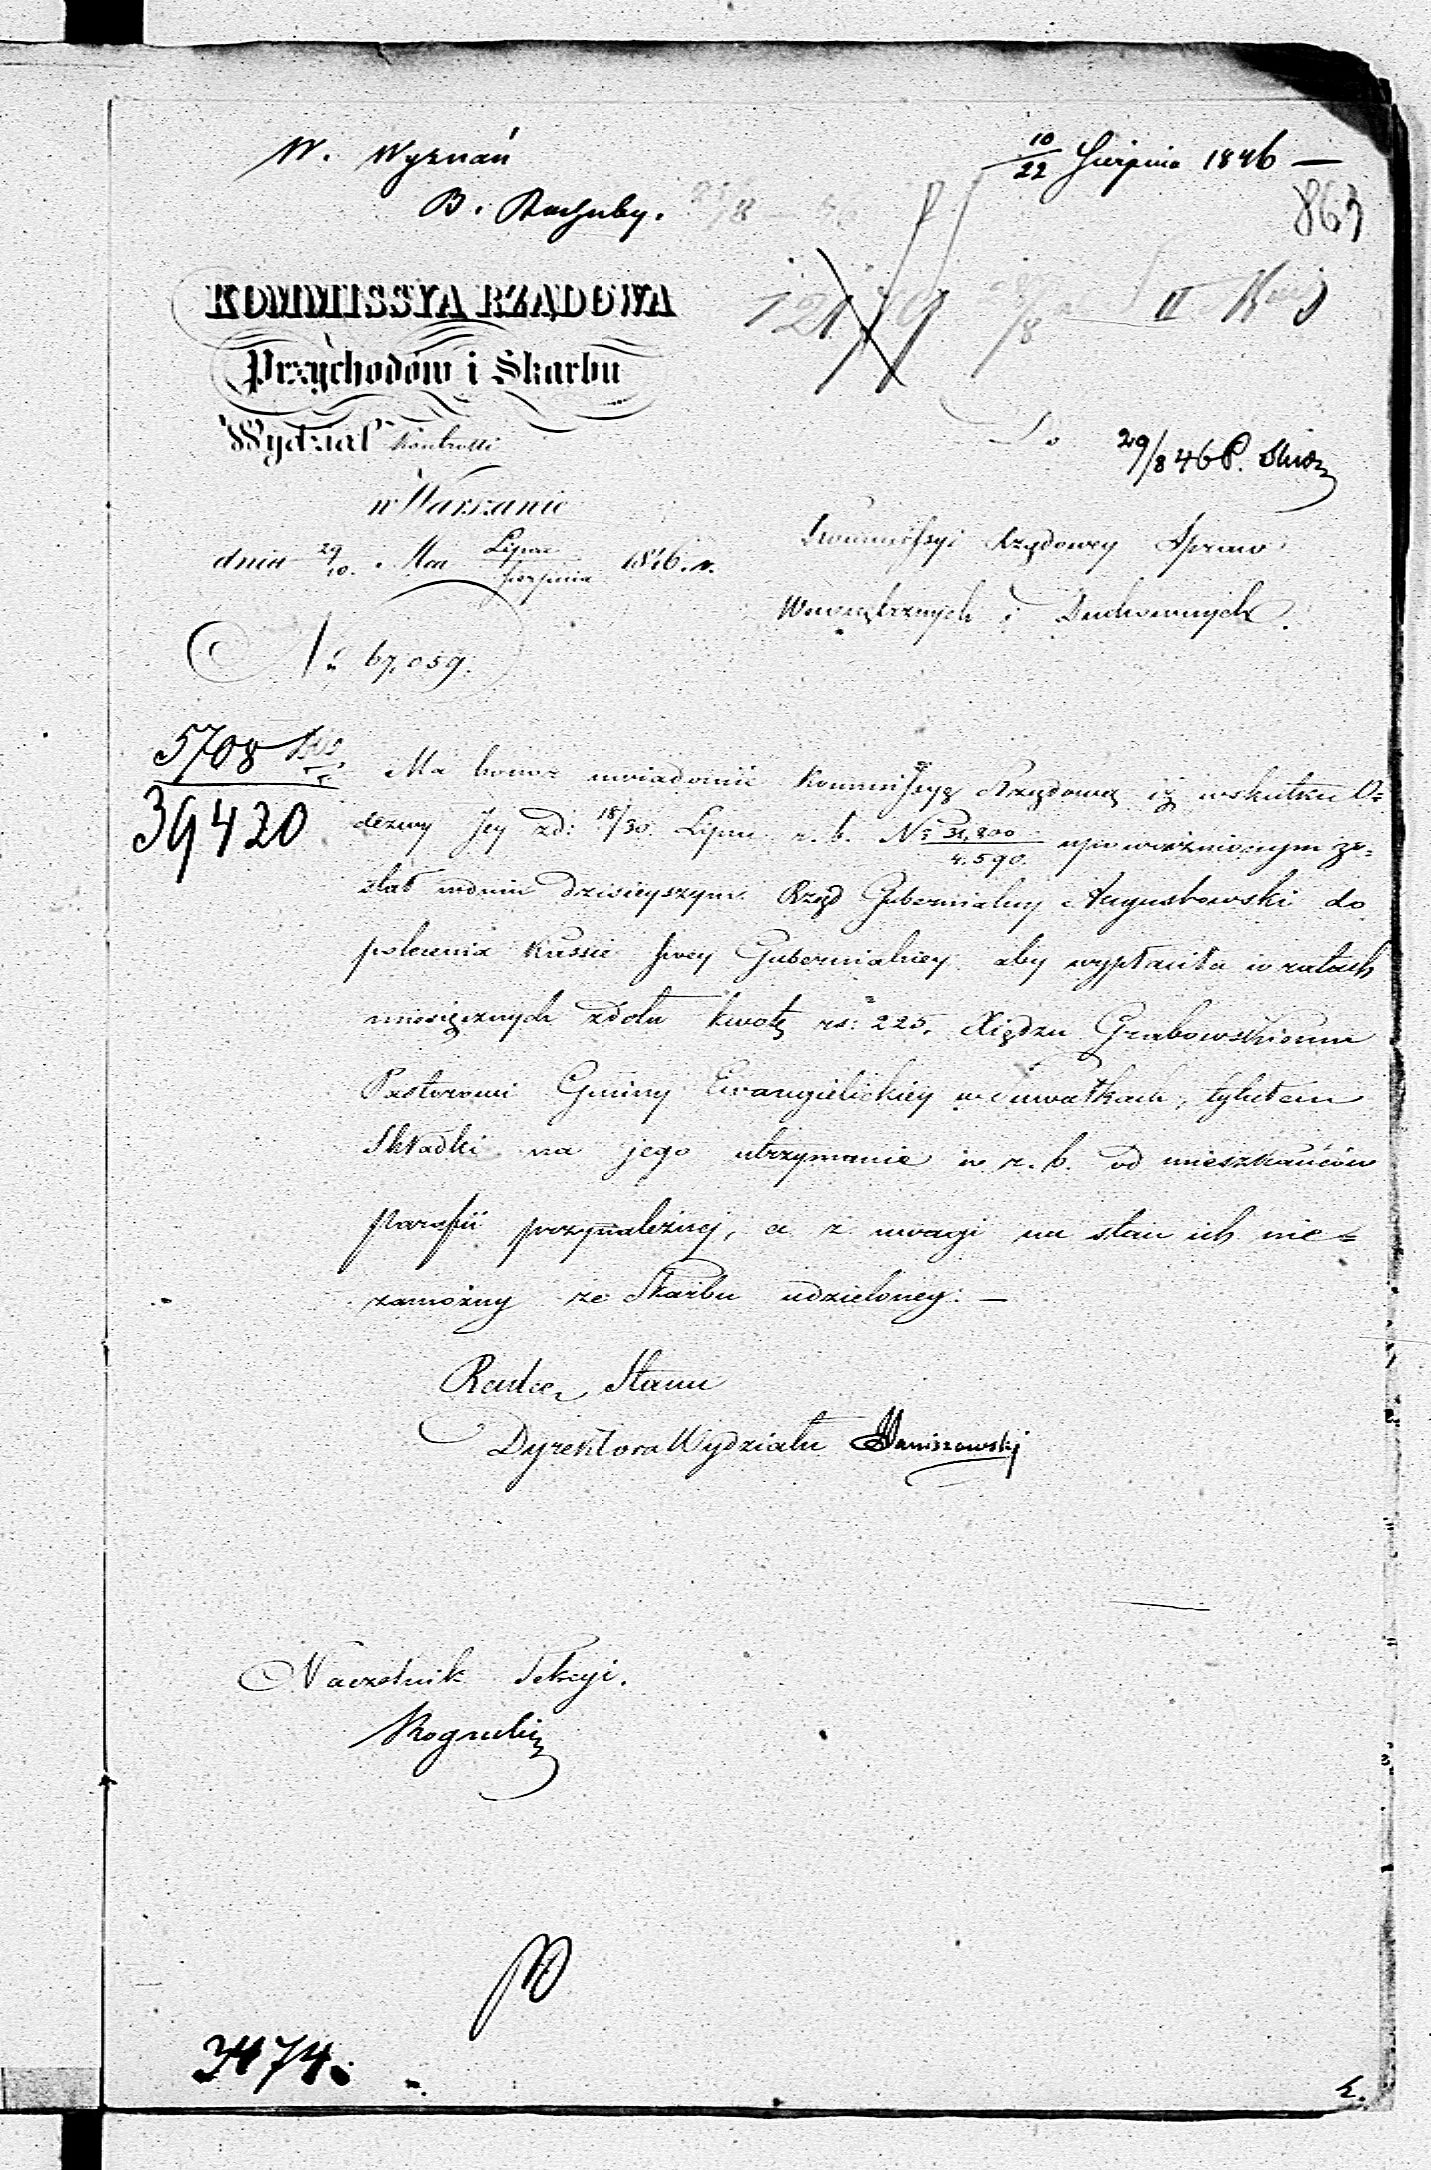 W. Wyznań
B. Rachuby.
10/22 Sierpnia 1846 —
863
KOMMISSYA RZĄDOWA
Przychodów i Skarbu
Wydział Kontrolli
w Warszawie
dnia 29/10. Mca Lipca/Sierpnia 1846. r.
N: 67,059.
12179
II
Do
29/8 46 P.
Kommissyi Rządowey Spraw
Wewnętrznych i Duchownych.
5708
39420
Ma honor uwiadomić Kommissyę Rządową iż wskutku O=
dezwy Jey zd: 18/30 Lipca r. b. No 31,800/4.590. upoważnionym zo=
stał wdniu dzisieyszym Rząd Gubernialny Augustowski do
polecenia Kassie swey Gubernialney aby wypłaciła w ratach
miesięcznych zdołu kwotę rs: 225, Xiędzu Grabowskiemu
Pastorowi Gminy Ewangielickiey w Suwałkach, tytułem
Składki na jego utrzymanie w r. b. od mieszkańców
Parafii przynależnej, a z uwagi na stan ich nie=
zamożny ze Skarbu udzieloney. —
Radca Stanu
Dyrektora Wydziału
Naczelnik Sekcyi.
3474.